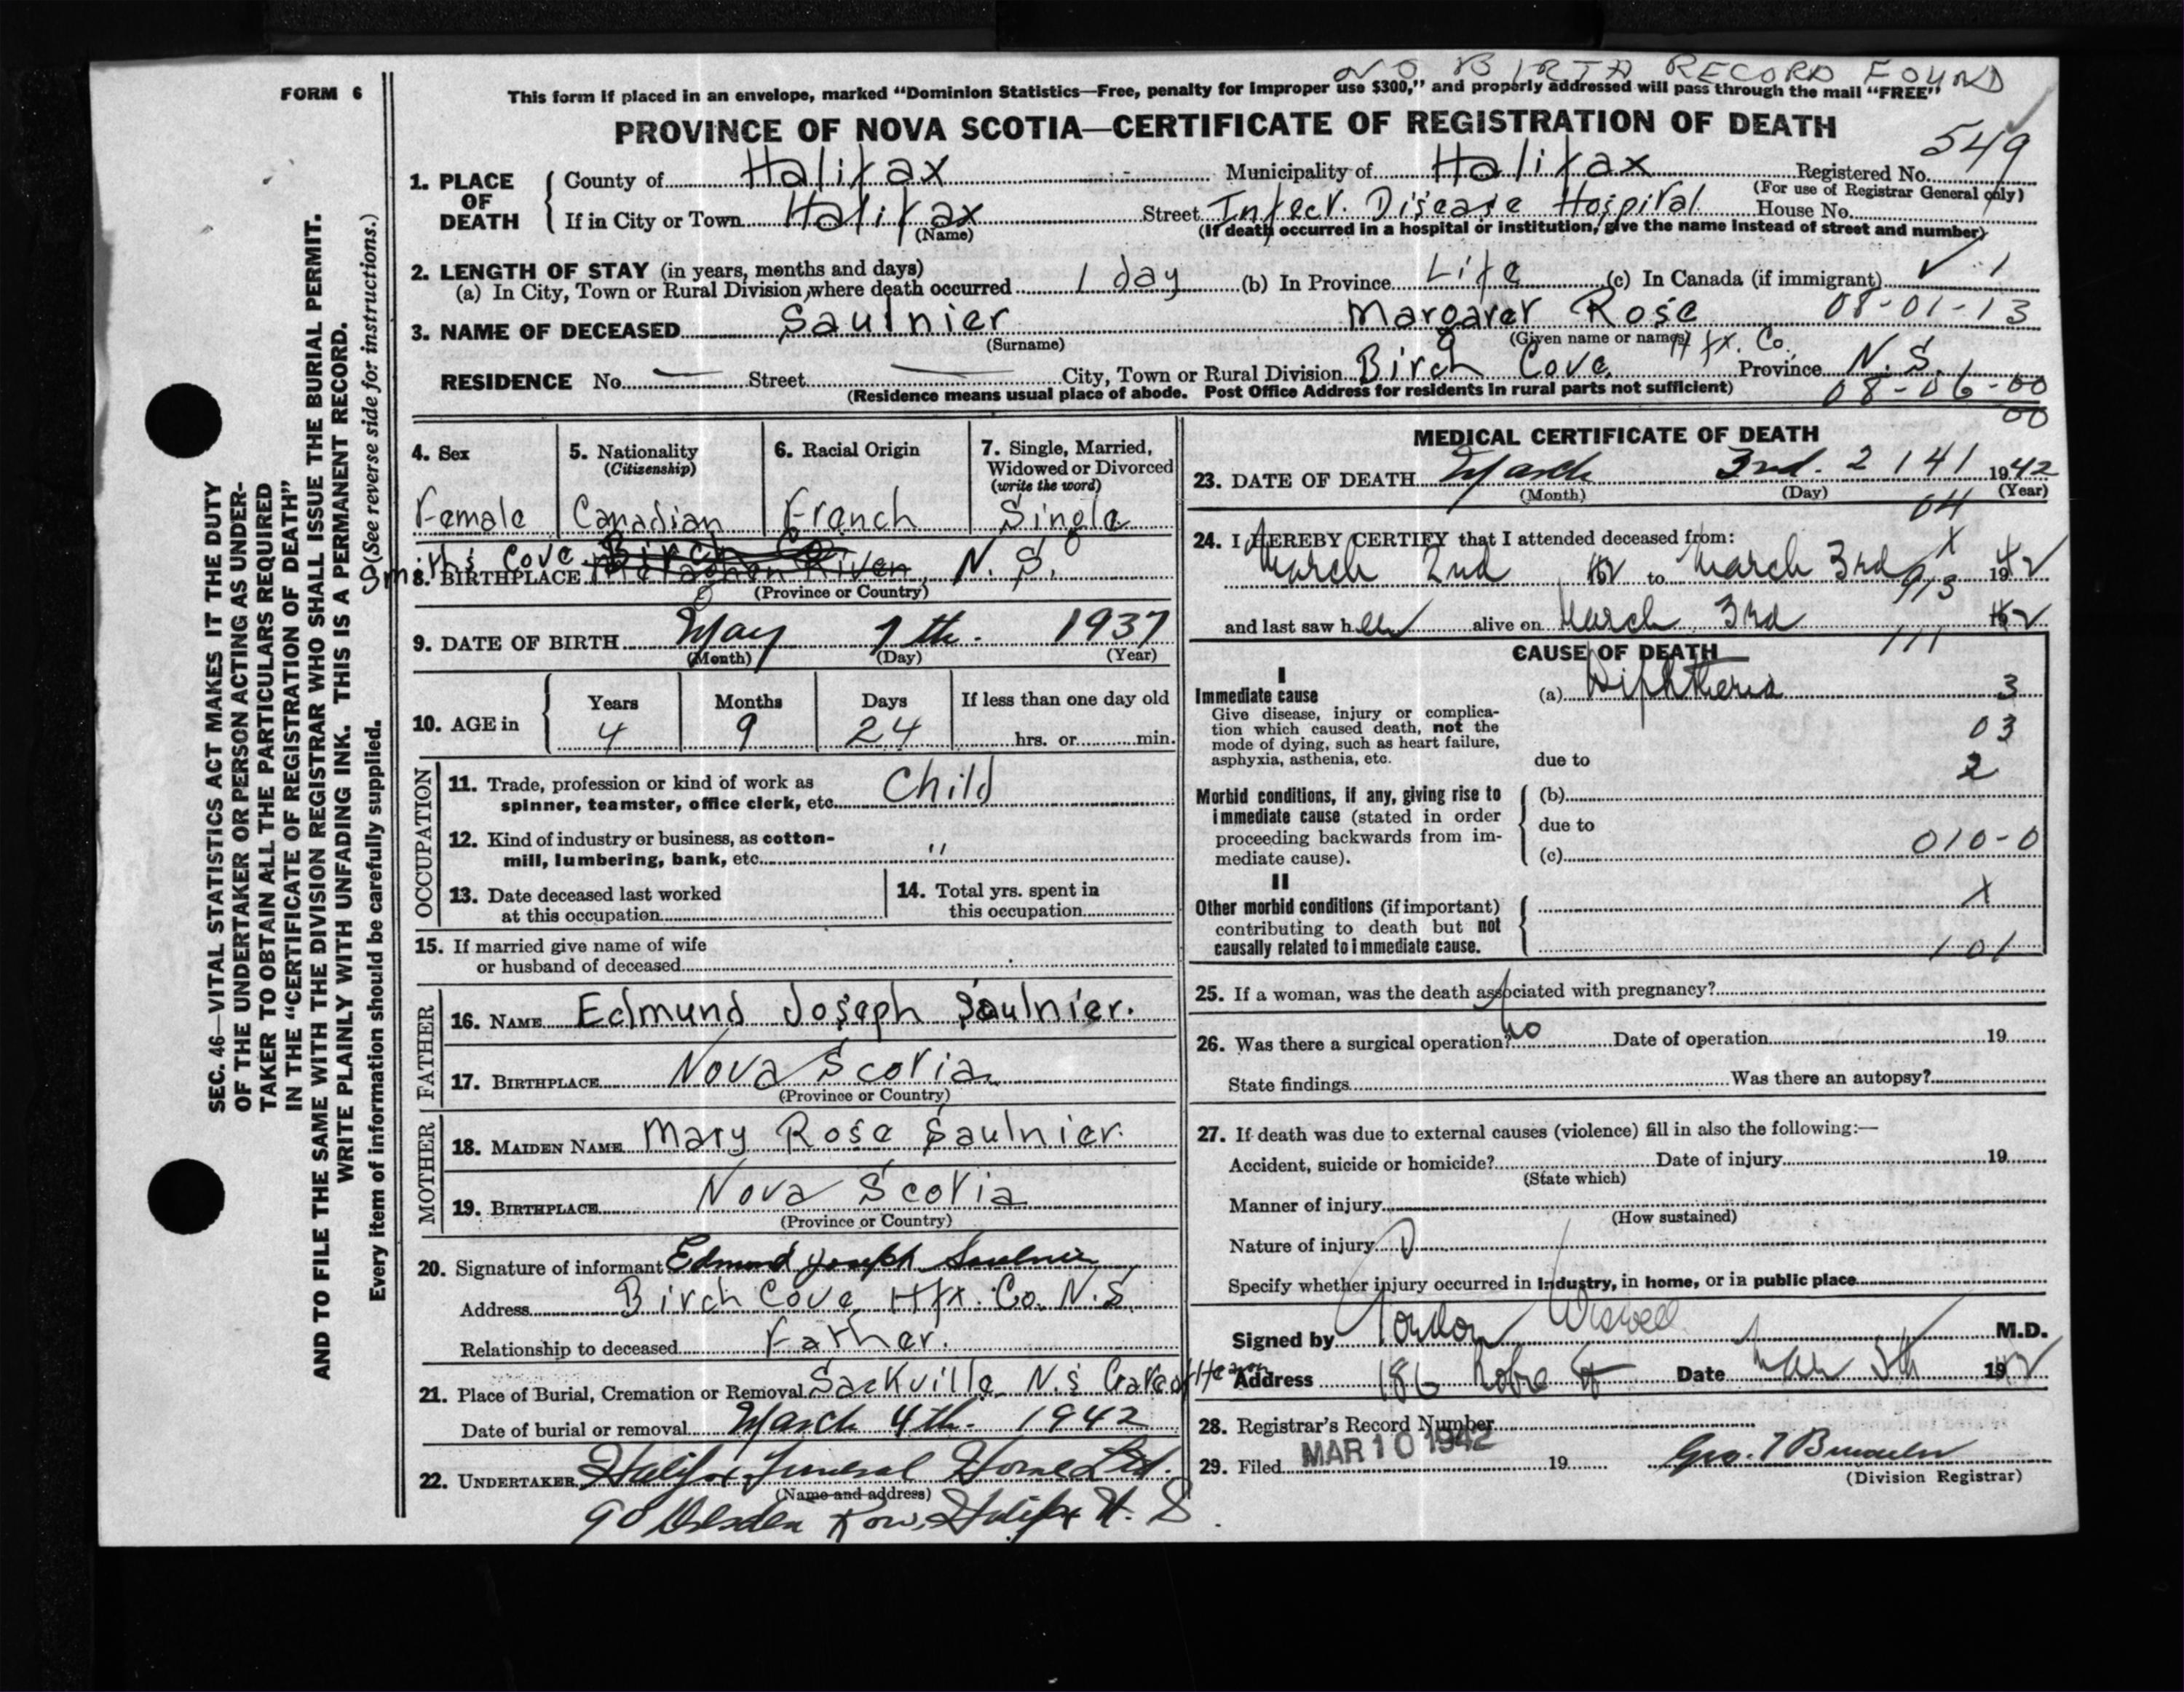 NO BIRTH RECORD FOUND
FORM 6
This form if placed in an envelope, marked “Dominion Statistics—Free, penalty for improper use $300,” and properly addressed will pass through the mail “FREE”
PROVINCE OF NOVA SCOTIA—CERTIFICATE OF REGISTRATION OF DEATH
549
1. PLACE OF DEATH
County of Halifax Municipality of Halifax Registered No.
(For use of Registrar General only)
If in City or Town Halifax Street Infect. Disease Hospital House No.
(Name) (If death occurred in a hospital or institution, give the name instead of street and number)
2. LENGTH OF STAY (in years, months and days)
(a) In City, Town or Rural Division where death occurred 1 day (b) In Province Life (c) In Canada (if immigrant) ✓ 1
3. NAME OF DECEASED Saulnier Margaret Rose 08-01-13
(Surname) (Given name or names)
Hfx. Co.
RESIDENCE No. — Street — City, Town or Rural Division Birch Cove Province N.S.
(Residence means usual place of abode. Post Office Address for residents in rural parts not sufficient) 08-06-00
00
4. Sex
Female
5. Nationality
(Citizenship)
Canadian
6. Racial Origin
French
7. Single, Married, Widowed or Divorced
(write the word)
Single
Smith's Cove Birch Co
8. BIRTHPLACE Metaghan River, N.S.
(Province or Country)
9. DATE OF BIRTH May 7th. 1937
(Month) (Day) (Year)
10. AGE in
Years Months Days If less than one day old
4 9 24 hrs. or min.
OCCUPATION
11. Trade, profession or kind of work as
spinner, teamster, office clerk, etc. Child
12. Kind of industry or business, as cotton-
mill, lumbering, bank, etc. "
13. Date deceased last worked
at this occupation
14. Total yrs. spent in
this occupation
15. If married give name of wife
or husband of deceased
FATHER
16. NAME Edmund Joseph Saulnier.
17. BIRTHPLACE Nova Scotia
(Province or Country)
MOTHER
18. MAIDEN NAME Mary Rose Saulnier
19. BIRTHPLACE Nova Scotia
(Province or Country)
20. Signature of informant Edmund Joseph Saulnier
Address Birch Cove Hfx. Co. N.S.
Relationship to deceased Father.
21. Place of Burial, Cremation or Removal Sackville N.S
Date of burial or removal March 4th. 1942
22. UNDERTAKER Halifax Funeral Home Ltd.
(Name and address)
90 Dresden Row, Halifax N.S.
MEDICAL CERTIFICATE OF DEATH
23. DATE OF DEATH March 3rd. 2 141 1942
(Month) (Day) (Year)
04
24. I HEREBY CERTIFY that I attended deceased from:
X
March 2nd 42 to March 3rd 1942
and last saw her alive on March 3rd 42
111
CAUSE OF DEATH
I
Immediate cause (a) Diphtheria 3
Give disease, injury or complica-
tion which caused death, not the
mode of dying, such as heart failure,
asphyxia, asthenia, etc.
03
due to
2
Morbid conditions, if any, giving rise to
immediate cause (stated in order
proceeding backwards from im-
mediate cause).
(b)
due to
(c) 010-0
II
X
Other morbid conditions (if important)
contributing to death but not
causally related to immediate cause.
101
25. If a woman, was the death associated with pregnancy?
26. Was there a surgical operation? no Date of operation 19
State findings Was there an autopsy?
27. If death was due to external causes (violence) fill in also the following:—
Accident, suicide or homicide? Date of injury 19
(State which)
Manner of injury
(How sustained)
Nature of injury
Specify whether injury occurred in industry, in home, or in public place
Signed by Gordon Wiswell M.D.
Address 186 Robie St Date Mar 5th 1942
28. Registrar's Record Number
29. Filed MAR 10 1942 19
(Division Registrar)
SEC. 46—VITAL STATISTICS ACT MAKES IT THE DUTY
OF THE UNDERTAKER OR PERSON ACTING AS UNDER-
TAKER TO OBTAIN ALL THE PARTICULARS REQUIRED
IN THE “CERTIFICATE OF REGISTRATION OF DEATH”
AND TO FILE THE SAME WITH THE DIVISION REGISTRAR WHO SHALL ISSUE THE BURIAL PERMIT.
WRITE PLAINLY WITH UNFADING INK. THIS IS A PERMANENT RECORD.
Every item of information should be carefully supplied. (See reverse side for instructions.)